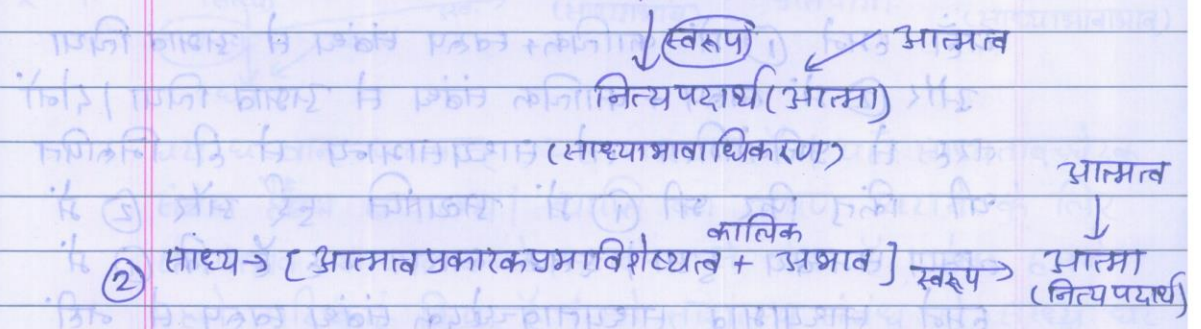 स्वरूप आत्मत्व
नित्यपदार्थ (आत्मा)
(साध्याभावाधिकरण)
आत्मत्व
कालिक
② साध्य → [आत्मत्वप्रकारकप्रमाविशेष्यत्व + अभाव] स्वरूप → आत्मा
(नित्यपदार्थ)